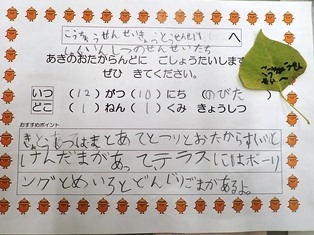 こうちょうせんせい きょうとうせんせい
しょくいんしつのせんせいたち へ
あきのおたからんどに ごしょうたいします
ぜひ きてください。
いつ (12)がつ(10)にち (のびた)
どこ (1)ねん(1)くみ きょうしつ
おすすめポイント
まとあてとつりとおたからすくいと
けんだまがあって、テラスにはボーリ
ングとめいろとどんぐりごまがあるよ。